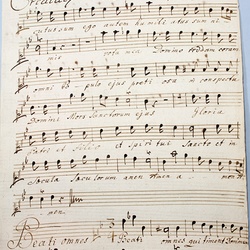 Credidi
cutus sum ego autem humili atus sum ni
mis vota mea Domino reddam coram
omni populo ejus preti osa in conspectu
Domini Mors Sanctorum ejus Gloria
Patri et Filio et Spiritui Sancto et in
Saecula Saeculorum amen Amen a men
men
Beati omnes Beati omnes qui timent Dominum